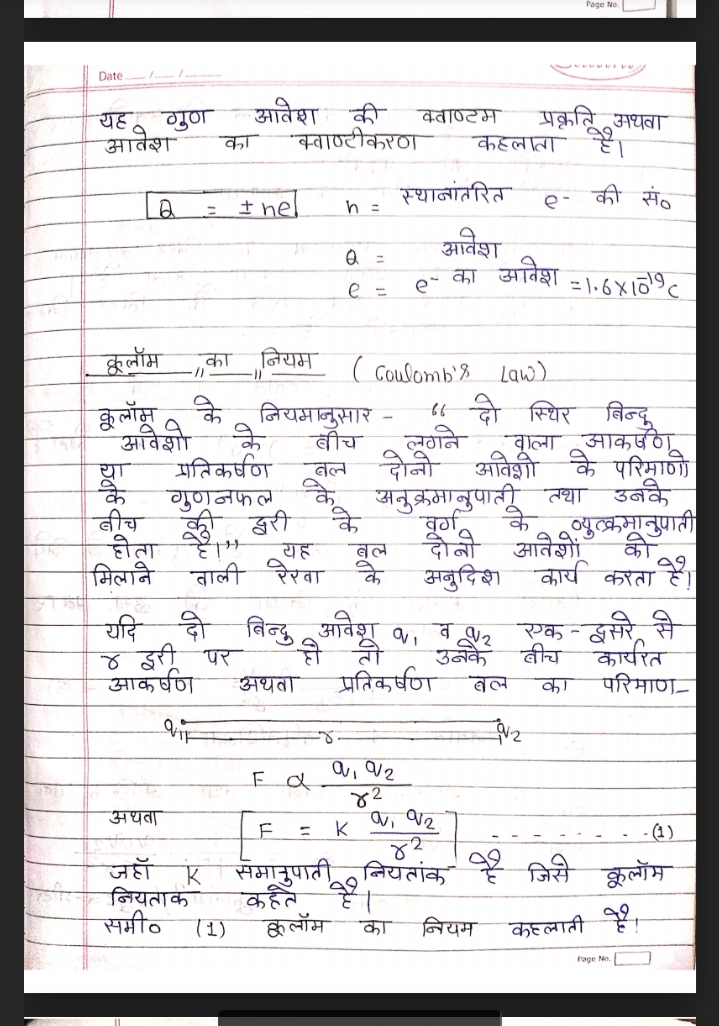 Page No.
Date
यह गुण आवेश की क्वाण्टम प्रकृति अथवा
आवेश का क्वाण्टीकरण कहलाता है।
Q = ±ne n = स्थानांतरित e- की सं०
Q = आवेश
e = e- का आवेश = 1.6×10⁻¹⁹C
कूलॉम का नियम ( Coulomb's Law)
कूलॉम के नियमानुसार - “ दो स्थिर बिन्दु
आवेशो के बीच लगने वाला आकर्षण
या प्रतिकर्षण बल दोनो आवेशो के परिमाणो
के गुणनफल के अनुक्रमानुपाती तथा उनके
बीच की दूरी के वर्ग के व्युत्क्रमानुपाती
होता है।” यह बल दोनो आवेशों को
मिलाने वाली रेखा के अनुदिश कार्य करता है।
यदि दो बिन्दु आवेश q₁ व q₂ एक-दूसरे से
r दूरी पर हो तो उनके बीच कार्यरत
आकर्षण अथवा प्रतिकर्षण बल का परिमाण-
q₁ r q₂
F ∝ q₁ q₂ / r²
अथवा F = K q₁ q₂ / r² - - - - - - - (1)
जहाँ K समानुपाती नियतांक है जिसे कूलॉम
नियतांक कहते है।
समी० (1) कूलॉम का नियम कहलाती है!
Page No.